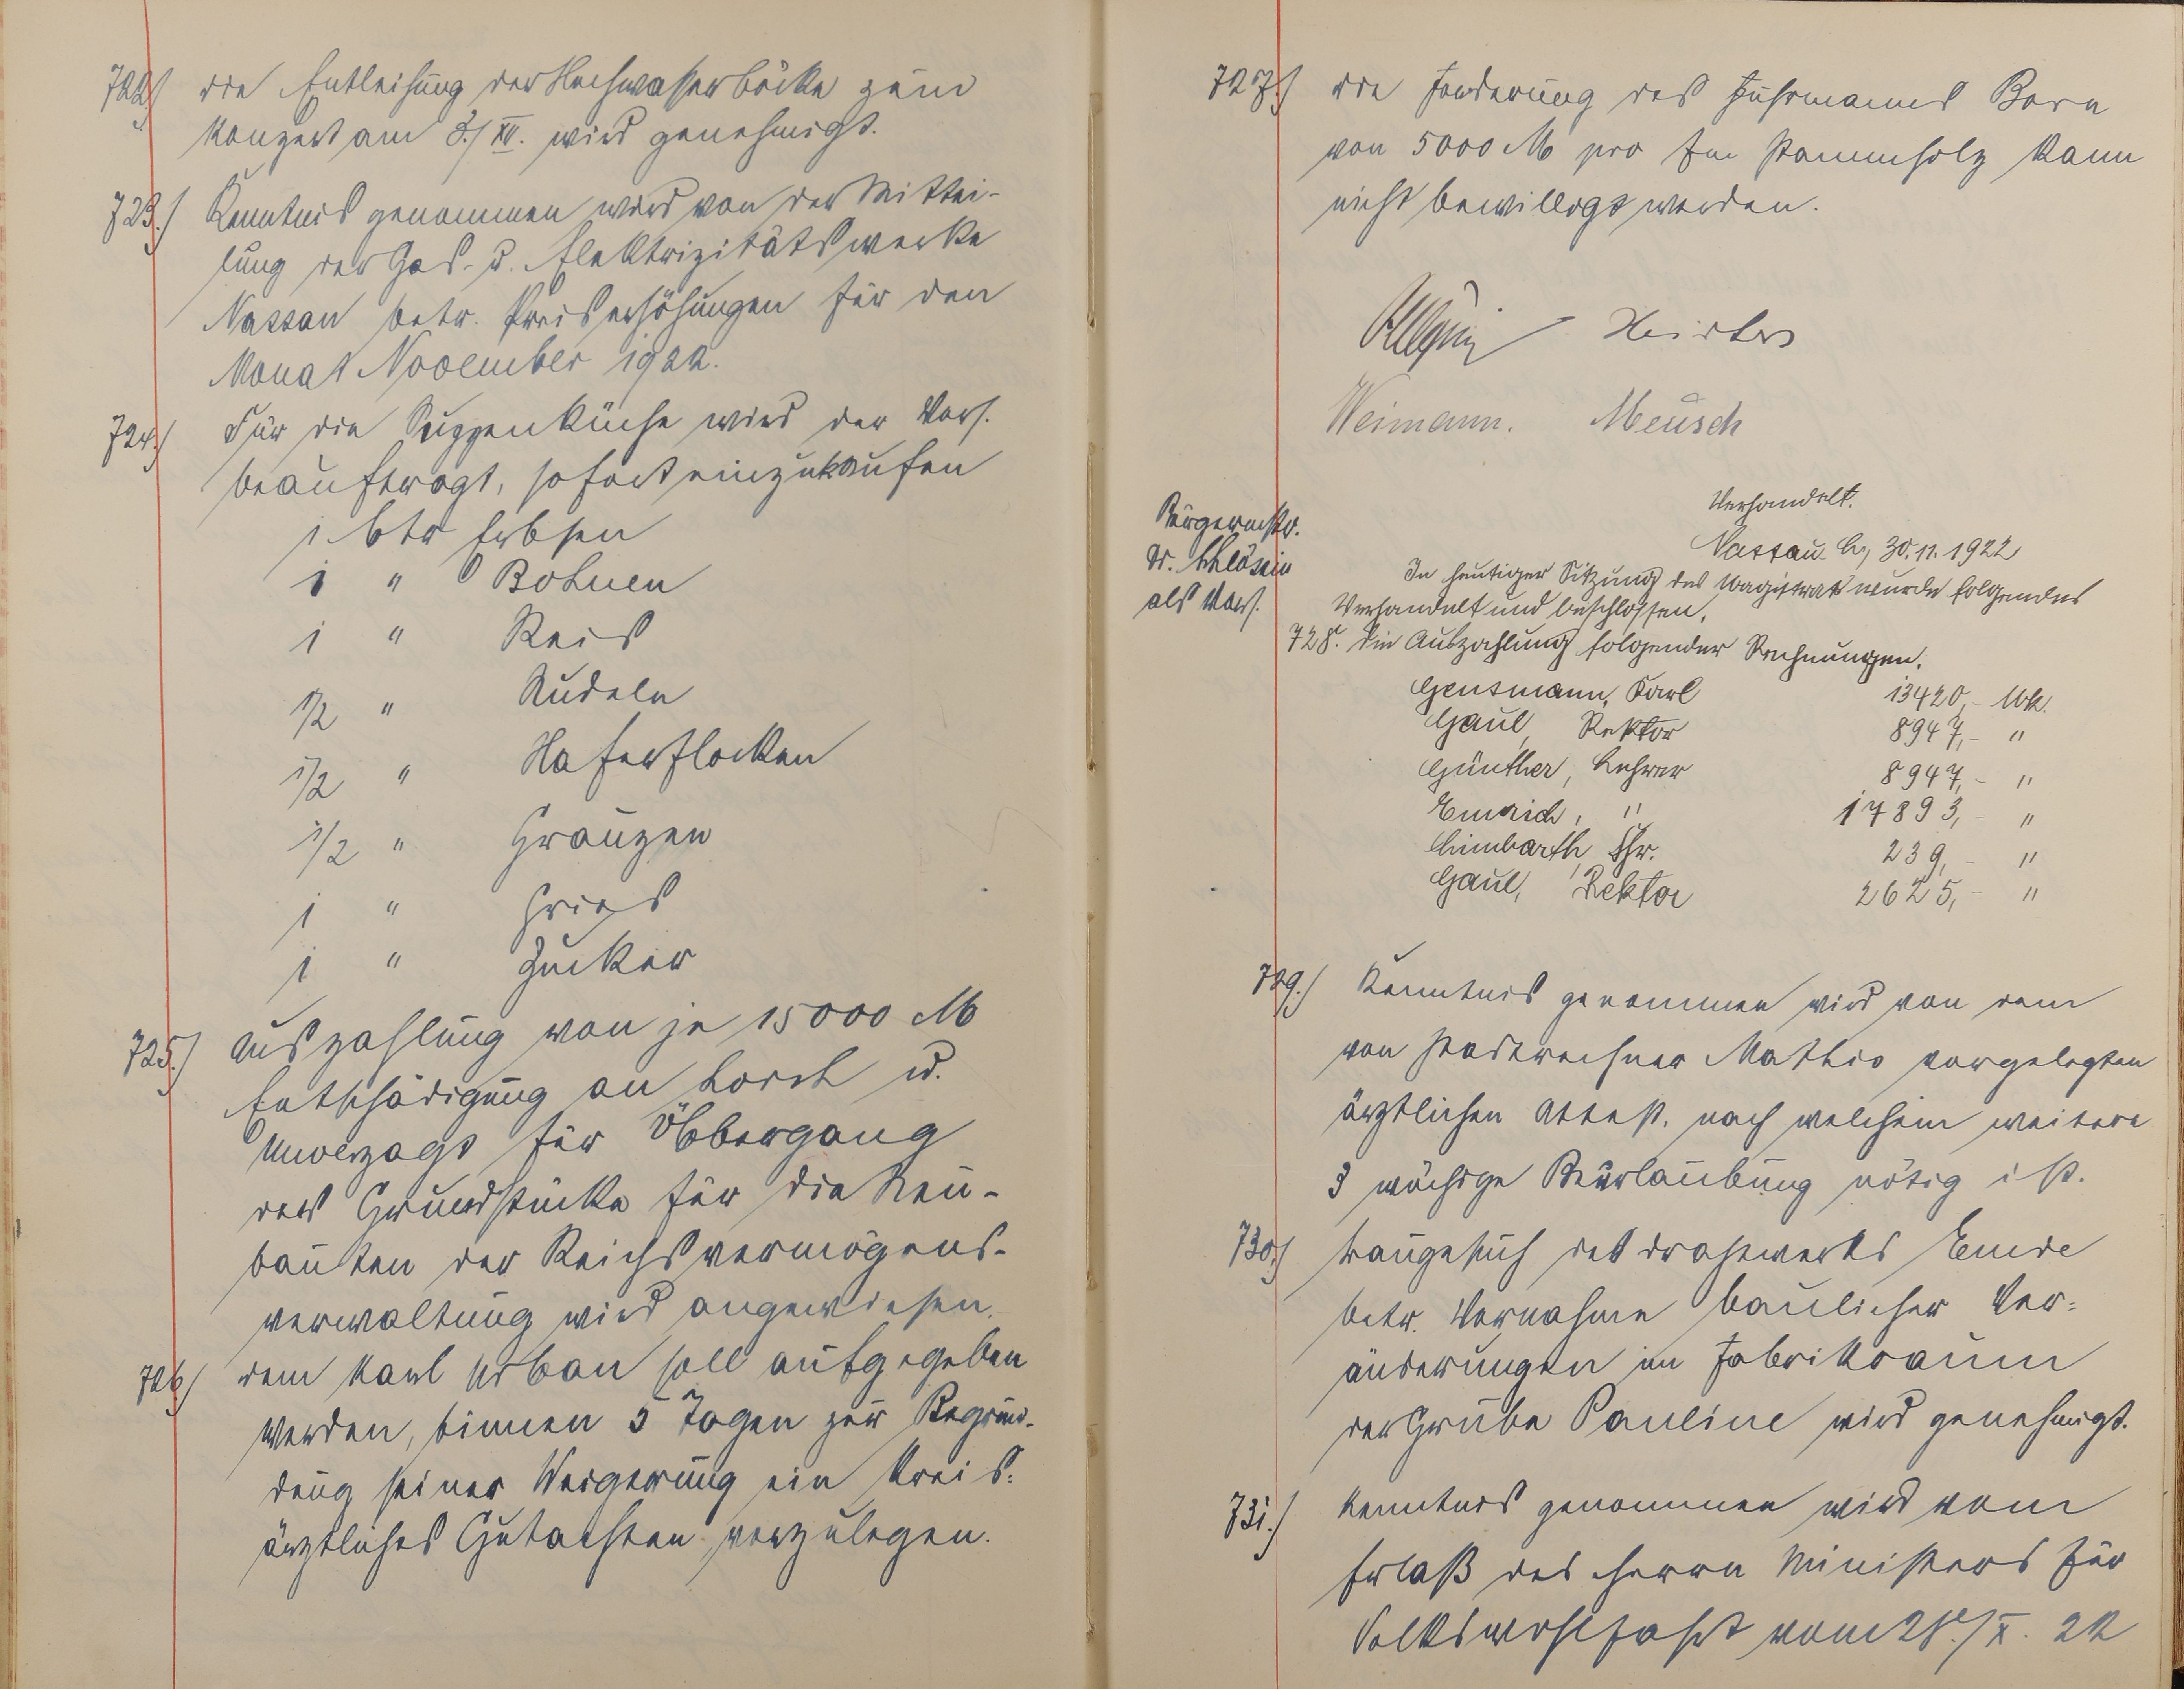 722.) die Entleihung der Hochwasserböcke zum
Konzert am 3./XII. wird genehmigt.
723.) Kenntnis genommen wird von der Mittei-
lung der Gas- u. Elektrizitätswerke
Nassau betr. Preiserhöhungen für den
Monat November 1922.
724.) Für die Suppenküche wird der Vors.
beauftragt, sofort einzukaufen
1 Ctr Erbsen
1 " Bohnen
1 " Reis
1/2 " Nudeln
1/2 " Haferflocken
1/2 " Graupen
1 " Gries
1 " Zucker
725.) Auszahlung von je 15000 M
Entschädigung an Lorch u.
Unverzagt für Übergang
des Grundstücks für die Neu-
bauten der Reichsvermögens-
verwaltung wird angewiesen.
726.) dem Karl Urban soll aufgegeben
werden, binnen 5 Tagen zur Begrün-
dung seiner Weigerung ein kreis-
ärztliches Gutachten vorzulegen.
727.) die Forderung des Fuhrmanns Born
von 5000 M pro fm Stammholz kann
nicht bewilligt werden.
Weimann. Meusch
Verhandelt.
Nassau, 30.11.1922
Bürgermstr.
als Vors.
In heutiger Sitzung des Magistrats wurde folgendes
Verhandelt und beschlossen.
728. Die Auszahlung folgender Rechnungen.
Gensmann, Karl 13420,- Mk.
Gaul, Rektor 8947,- "
Günther, Lehrer 8947,- "
Emrich, " 17893,- "
Limbarth, Chr. 239,- "
Gaul, Rektor 2625,- "
729.) Kenntnis genommen wird von dem
von Stadtrechner Mathis vorgelegten
ärztlichen Attest, nach welchem weitere
3 wöchige Beurlaubung nötig ist.
730.) Baugesuch des Drahtwerks Emde
betr. Vornahme baulicher Ver-
änderungen im Fabrikraum
der Grube Pauline wird genehmigt.
731.) Kenntnis genommen wird vom
Erlaß des Herrn Ministers für
Volkswohlfahrt vom 28./X. 22